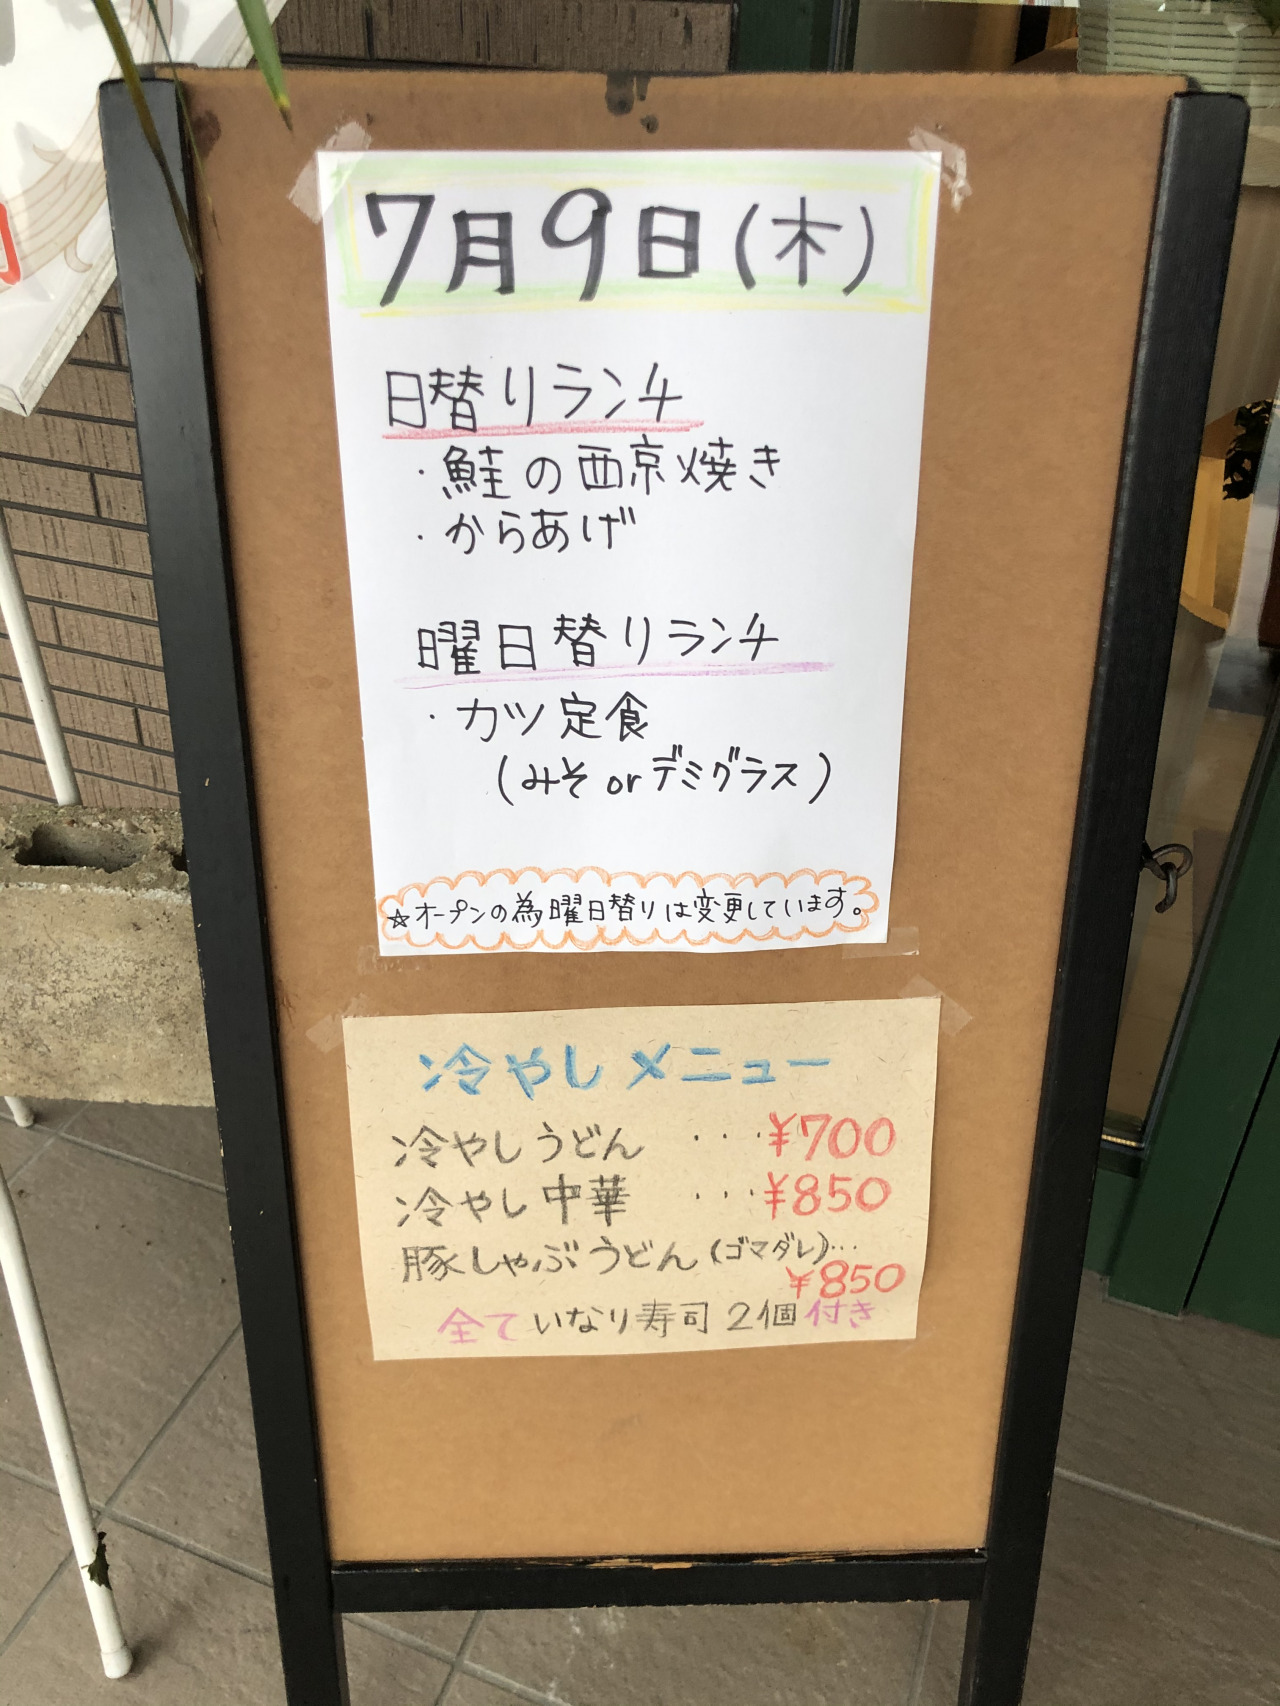 7月9日(木)
日替りランチ
・鮭の西京焼き
・からあげ
曜日替りランチ
・カツ定食
(みそorデミグラス)
☆オープンの為曜日替りは変更しています。
冷やしメニュー
冷やしうどん ・・・¥700
冷やし中華 ・・・¥850
豚しゃぶうどん(ゴマダレ)・・・
¥850
全ていなり寿司2個付き